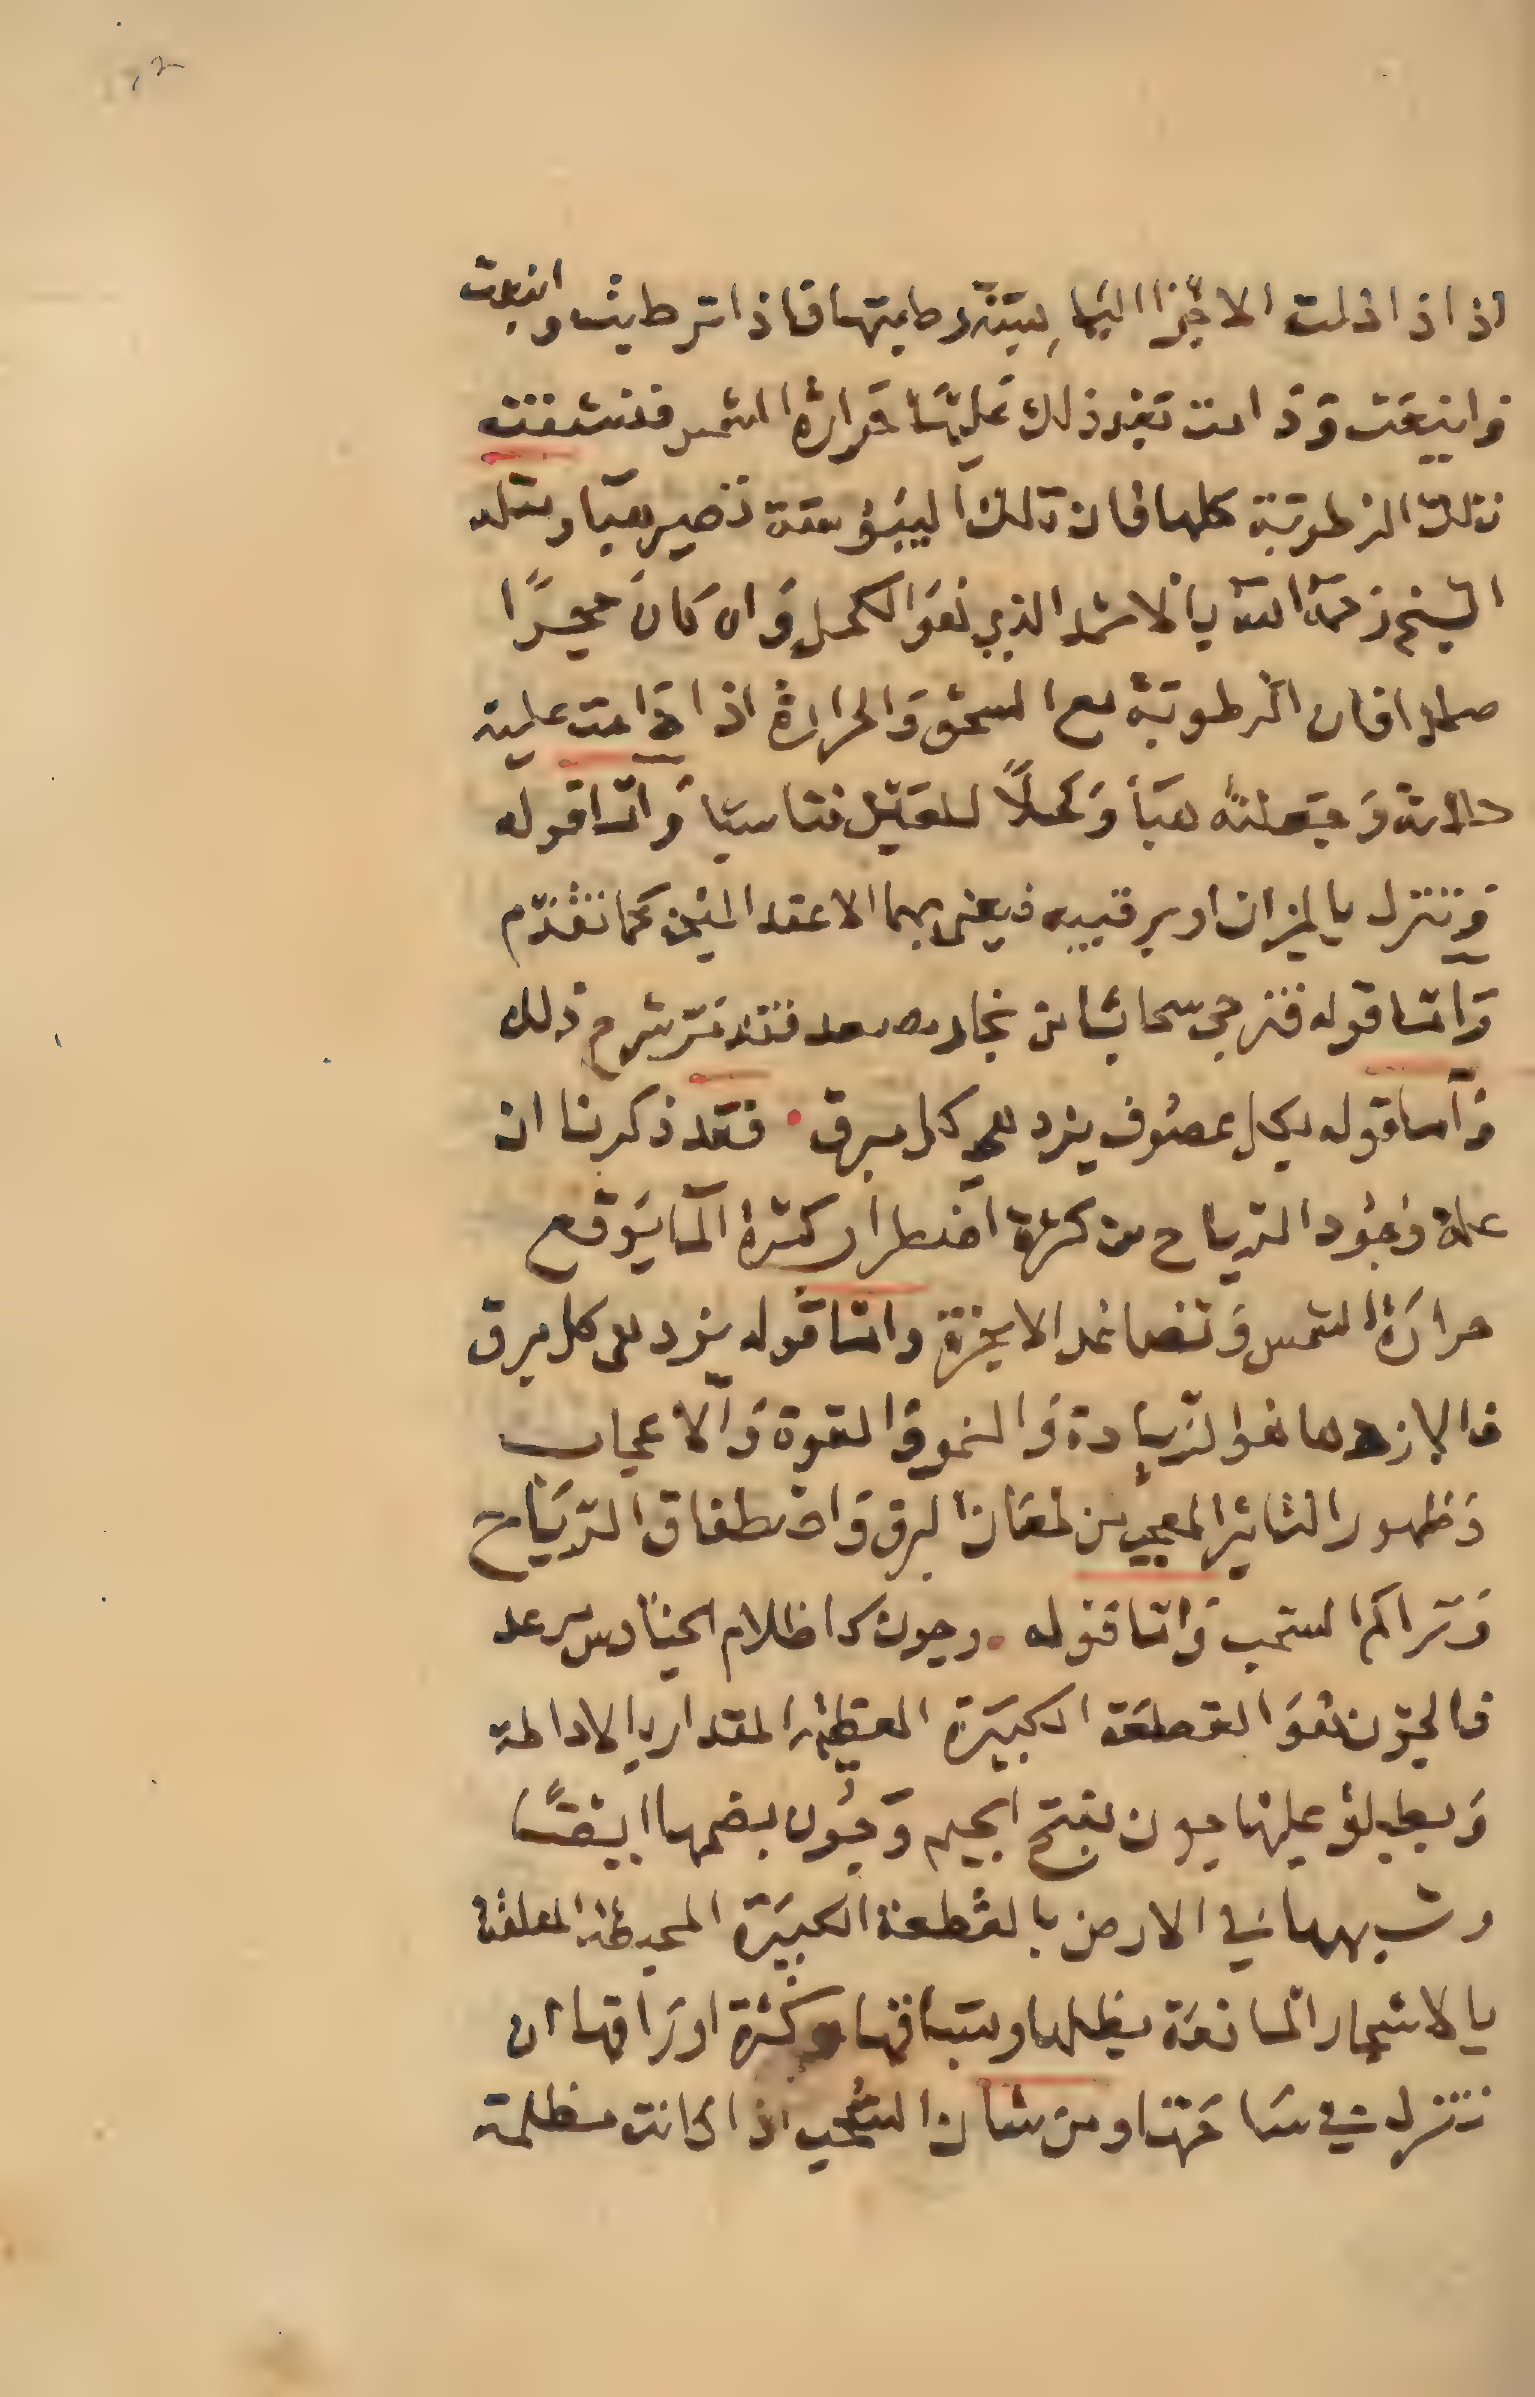 اذا اذا خلت الاجزا اليابسة رطابتها فاذا ترطبت وانبعت
وانبعت ودامت بعد ذلك عليها حرارة الشمس فنشفته
تلك الرطوبة كلها فان تلك اليبوسة تصير هبا ومثله
الشيخ رحمه الله بالاثمد الذي هو الكحل وان كان حجرًا
صلدا فان الرطوبة مع السحق والحرارة اذا دامت عليه
حالاته وجعلته هبأ وكحلًا للعين مناسبا واما قوله
وتنزل بالميزان او برقيبه فيعني بهما الاعتدالين كما تقدم
واما قوله فتزجى سحائبا من بخار مصعد فقد مر شرح ذلك
واما قوله بكل عصوف يزدهى كل مبرق فقد ذكرنا ان
علة وجود الرياح من كثرة اضطرار كثرة الما بوقع
حرارة الشمس وتصاعد الابخرة واما قوله يزدهى كل مبرق
فالازدها هو الزيادة والنمو والقوة والاعجاب
وظهور التاثير العجيب من لمعان البرق واصطفاق الرياح
وتراكم السحب واما قوله وجون كاظلام الحنادس مرعد
فالجون هو القطعة الكبيرة العظيمة المقدار بالاحاطة
ويطلق عليها جون بفتح الجيم وجُون بضمها ايضًا
وشبهها في الارض بالقطعة الكبيرة المحيطة المعلقة
بالاشجار المانعة بظلها وسباقها وكثرة اوراقها ان
تنزل في ساحتها ومن شان السحب اذا كانت مظلمة